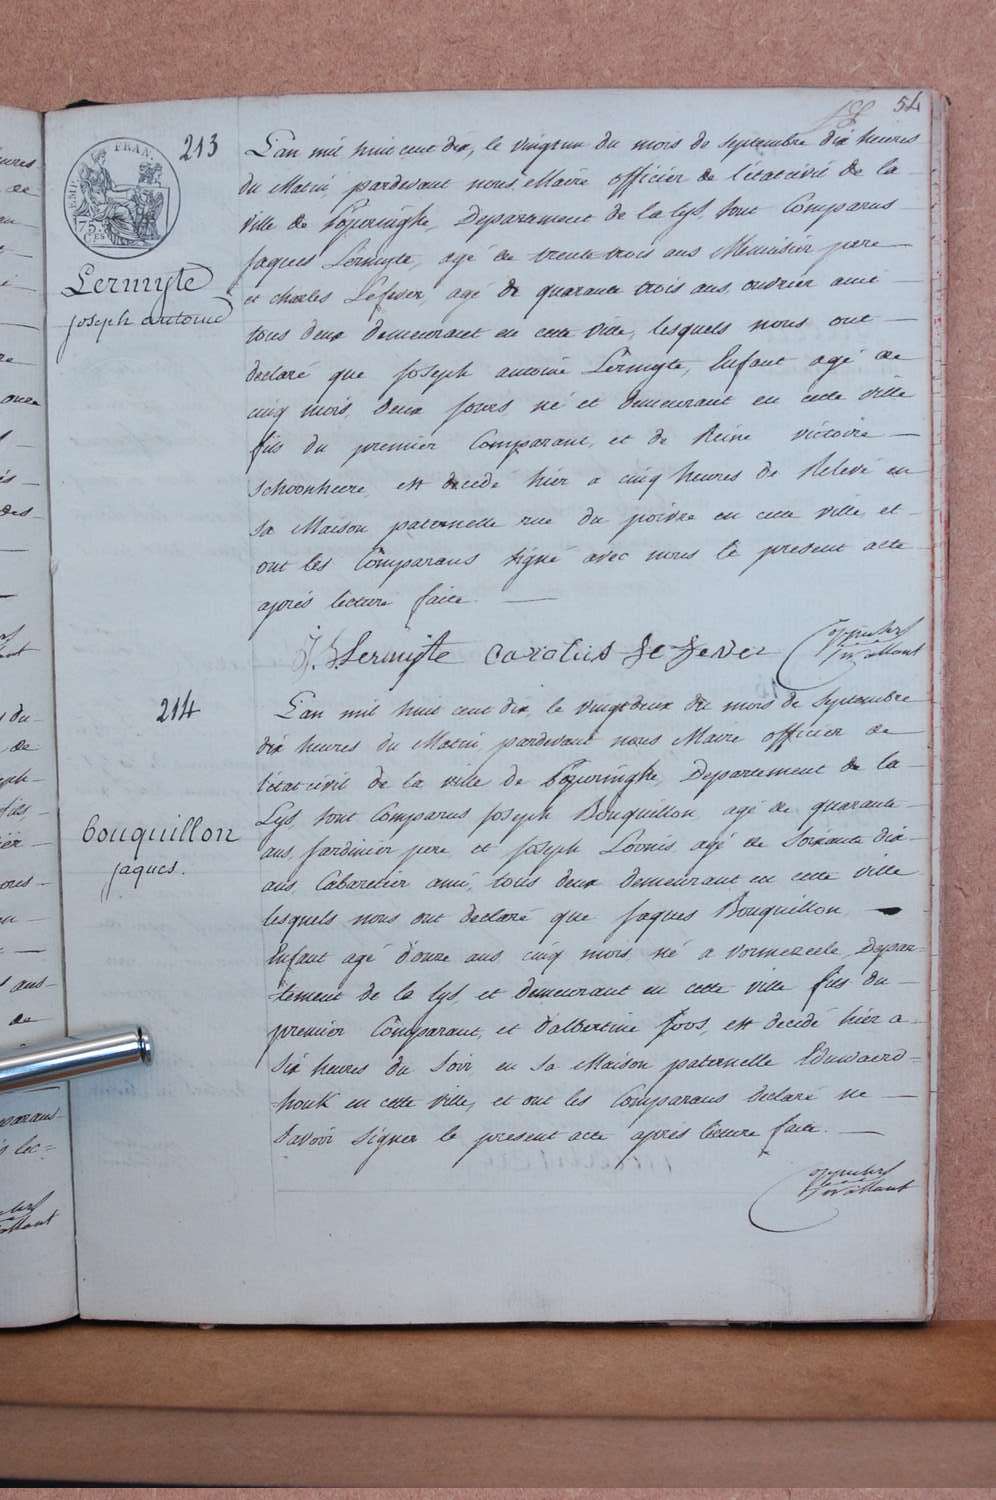 54
213
EMP. FRAN.
75
CES
Lermyte
joseph antoine
L'an mil huit cent dix, le vingt un du mois de Septembre dix heures
du Matin, pardevant nous Maire officier de l'etat civil de la
ville de Poperinghe, Departement de la Lys, sont Comparus
jaques Lermyte, agé de trente trois ans Menuisier pere
et charles Lefever, agé de quarante trois ans ouvrier ami
tous deux demeurant en cette ville, lesquels nous ont
declaré que joseph antoine Lermyte, Enfant agé de
cinq mois, deux jours, né et demeurant en cette ville
fils du premier Comparant, et de Reine victoire
schoonheere, est decedé hier a cinq heures de Relevé en
sa Maison paternelle rue du poivre en cette ville, et
ont les Comparans signé avec nous le present acte
aprés lecture faite.
J. Lermyte carolus Le Fever
214
bouquillon
jaques.
L'an mil huit cent dix, le vingt deux du mois de Septembre
dix heures du Matin, pardevant nous Maire officier de
l'etat civil de la ville de Poperinghe, Departement de la
Lys, sont Comparus joseph Bouquillon, agé de quarante
ans, jardinier pere et joseph agé de soixante dix
ans Cabaretier ami, tous deux demeurant en cette ville
lesquels nous ont declaré que jaques Bouquillon
Enfant agé d'onze ans cinq mois né a vormezeele, Depar-
tement de la Lys, et demeurant en cette ville fils du
premier Comparant, et d'albertine joos, est decedé hier a
six heures du soir en sa Maison paternelle Eduwaerd-
houk en cette ville, et ont les Comparans declaré ne
savoir signer le present acte aprés lecture faite.